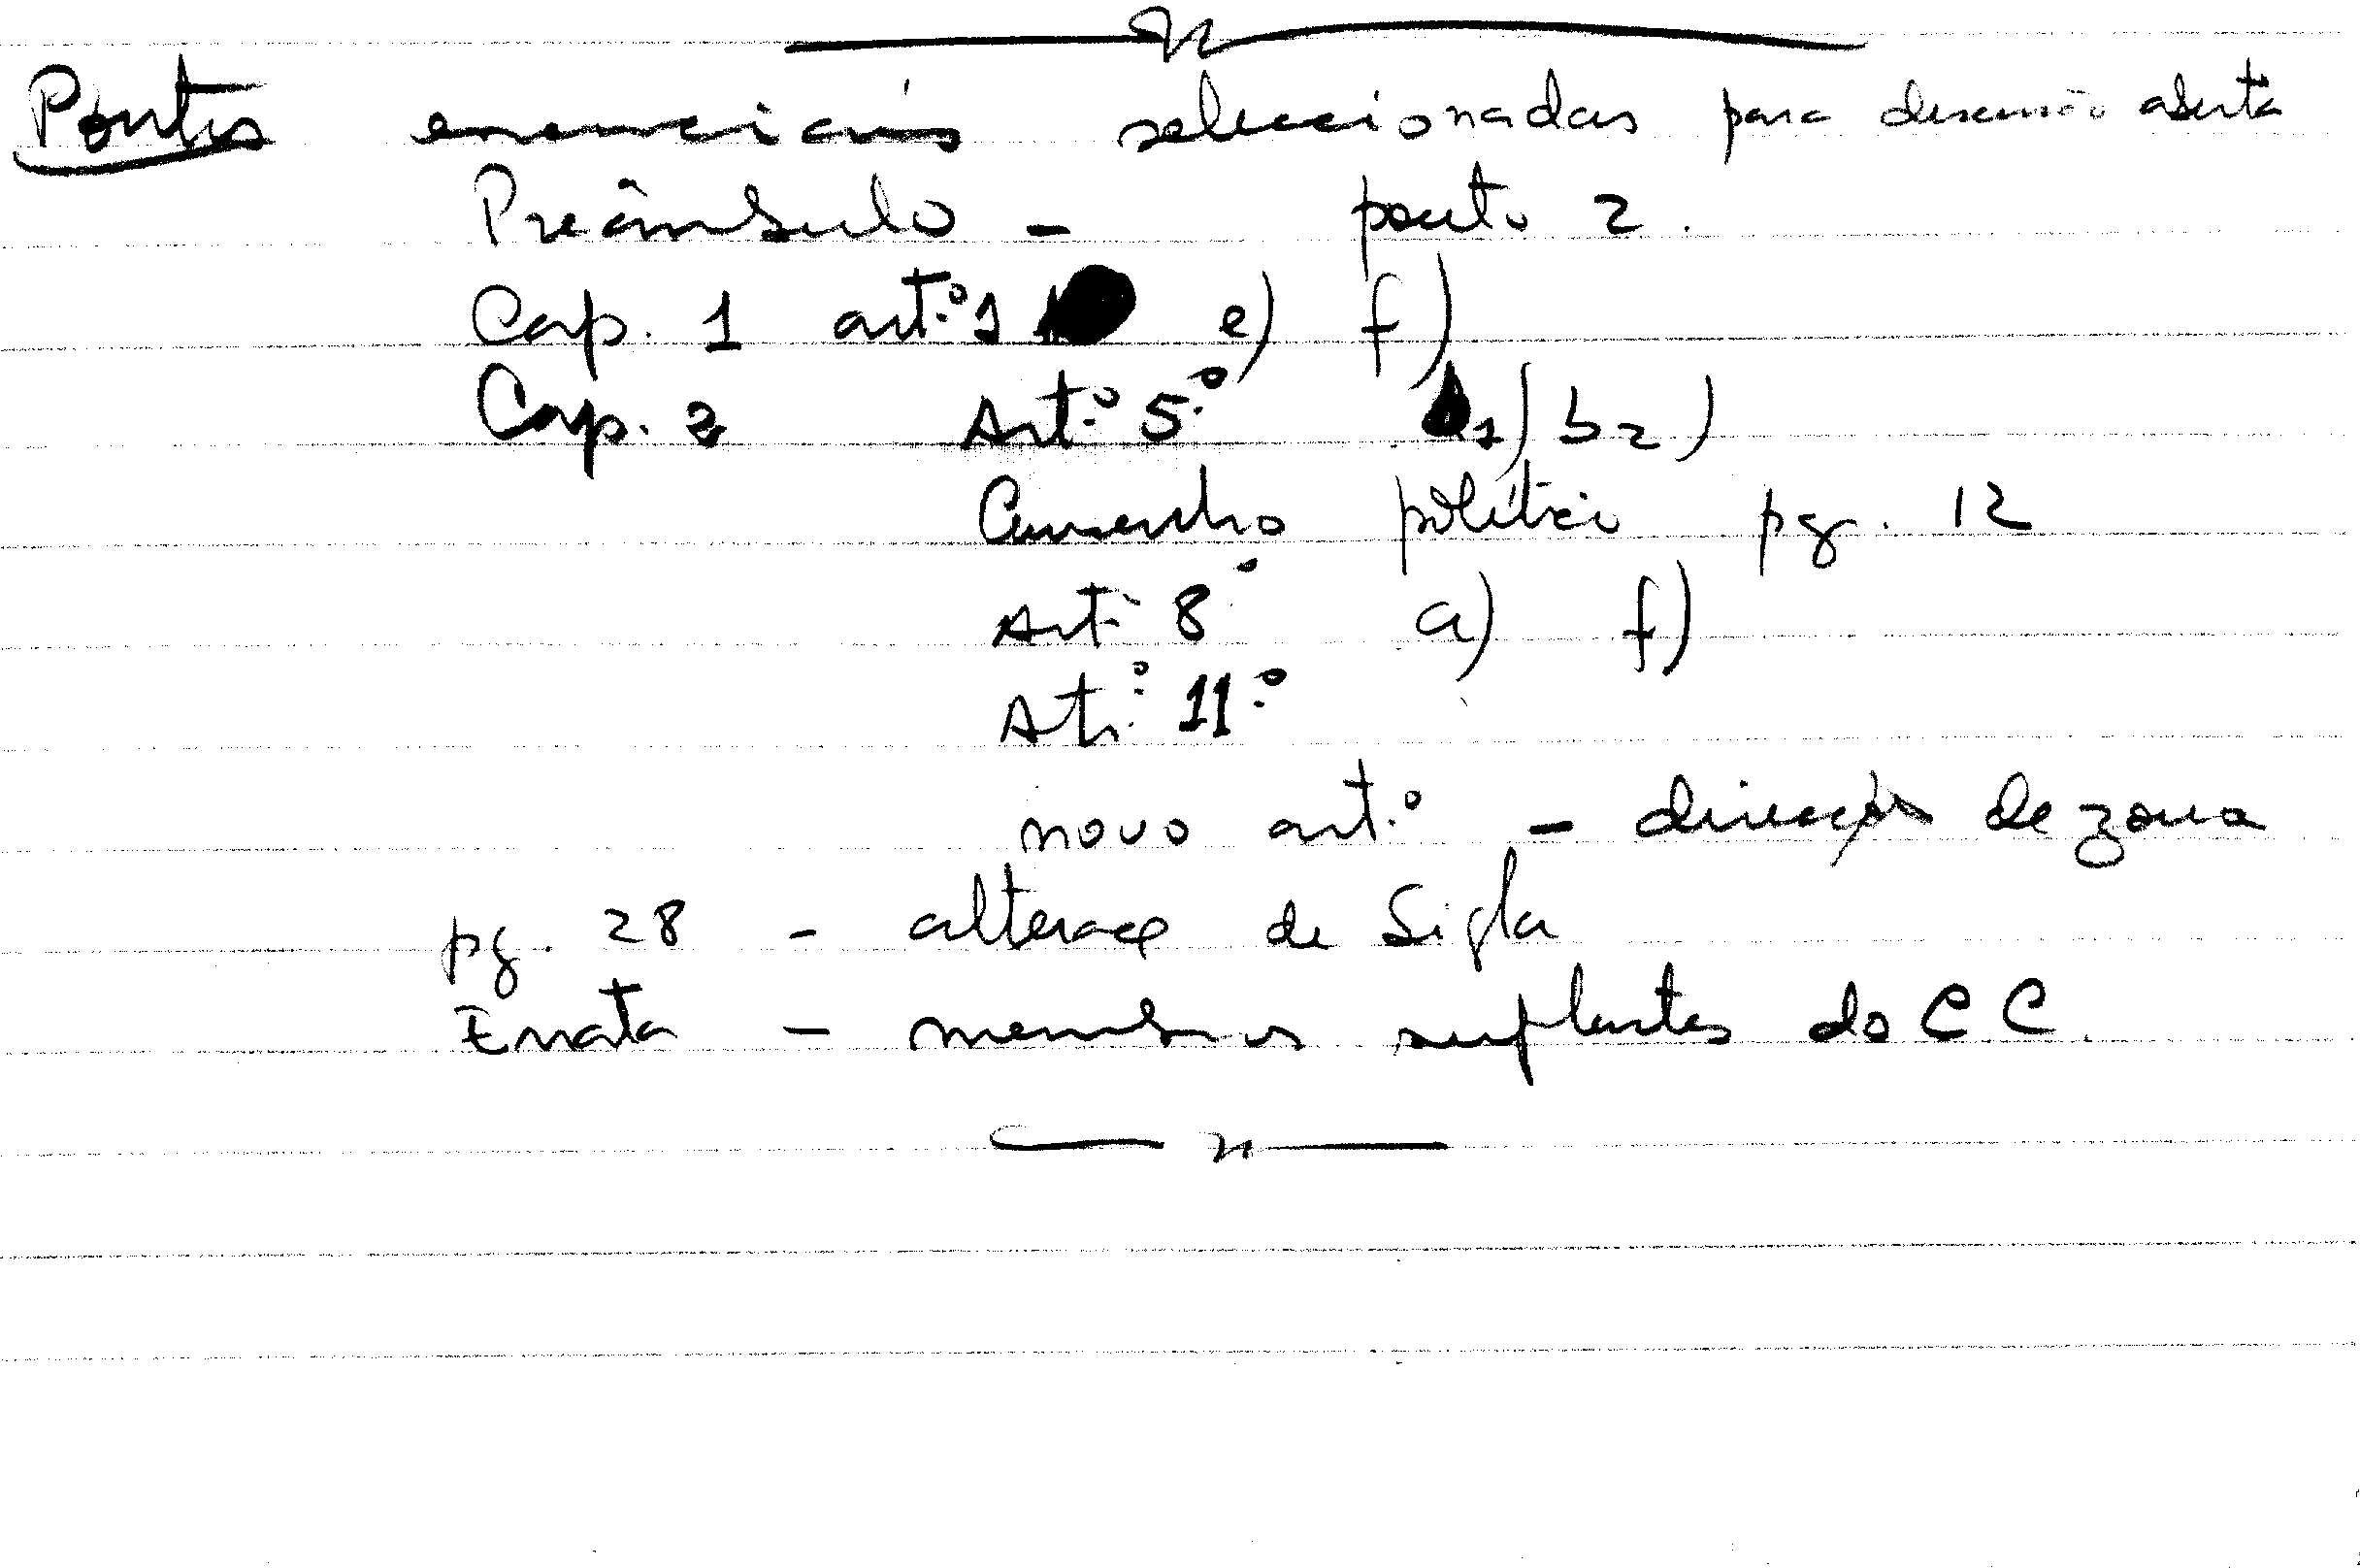 Pontos essenciais seleccionadas para discussão aberta
Preâmbulo - ponto 2.
Cap. 1 art.º 1 e) f)
Cap. 2 Art.º 5.º 1) b2)
político pg. 12
Art.º 8º a) f)
Art.º 11.º
novo art.º - direcção de zona
pg. 28 - alteração de Sigla
Errata - membros suplentes do CC.